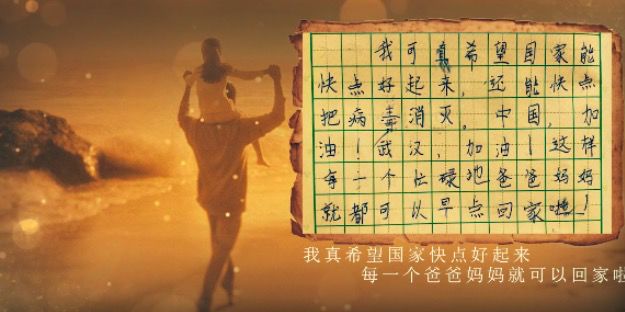 我可真希望国家能
快点好起来，还能快点
把病毒消灭。中国，加
油！武汉，加油！这样
每一个忙碌地爸爸妈妈
就都可以早点回家啦！
我真希望国家快点好起来
每一个爸爸妈妈就可以回家啦